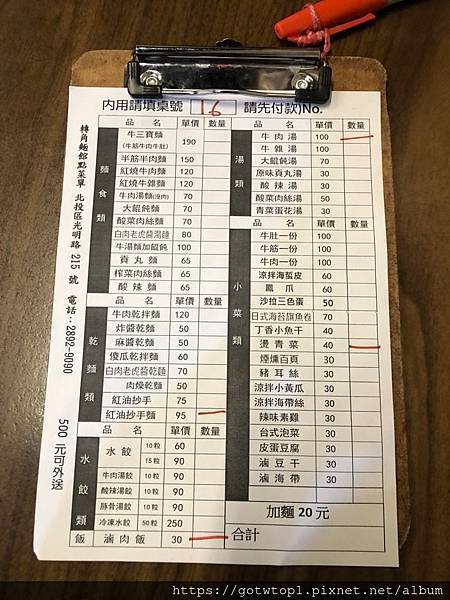 內用請填桌號 16 請先付款)No.
轉角麵館點菜單 北投區光明路 215 號 電話:2892-9090
500 元可外送
品 名 單價 數量
麵食類
牛三寶麵 190
(牛筋牛肉牛肚)
半筋半肉麵 150
紅燒牛肉麵 120
紅燒牛雜麵 120
牛肉湯麵(沒肉) 70
大餛飩麵 70
酸菜肉絲麵 70
白肉老虎醬湯麵 80
牛湯麵加餛飩 100
貢丸麵 65
榨菜肉絲麵 65
酸辣麵 65
品 名 單價 數量
乾麵類
牛肉乾拌麵 120
炸醬乾麵 50
麻醬乾麵 50
傻瓜乾拌麵 60
白肉老虎醬乾麵 70
肉燥乾麵 50
紅油抄手 75
紅油抄手麵 95
品 名 單價 數量
水餃類
水餃 10粒 60
15粒 90
牛肉湯餃 10粒 90
酸辣湯餃 10粒 90
豚骨湯餃 10粒 90
冷凍水餃 50粒 250
飯 滷肉飯 30
品 名 單價 數量
湯類
牛肉湯 100
牛雜湯 100
大餛飩湯 70
原味貢丸湯 30
酸辣湯 30
酸菜肉絲湯 50
青菜蛋花湯 30
品 名 單價 數量
小菜類
牛肚一份 100
牛筋一份 100
牛肉一份 100
涼拌海蜇皮 60
鳳爪 60
沙拉三色蛋 50
日式海苔旗魚卷 70
丁香小魚干 40
燙青菜 40
煙燻百頁 30
豬耳絲 30
涼拌小黃瓜 30
涼拌海帶絲 30
辣味素雞 30
台式泡菜 30
皮蛋豆腐 30
滷豆干 30
滷海帶 30
加麵 20 元
合計
https://gotwtop1.pixnet.net/album